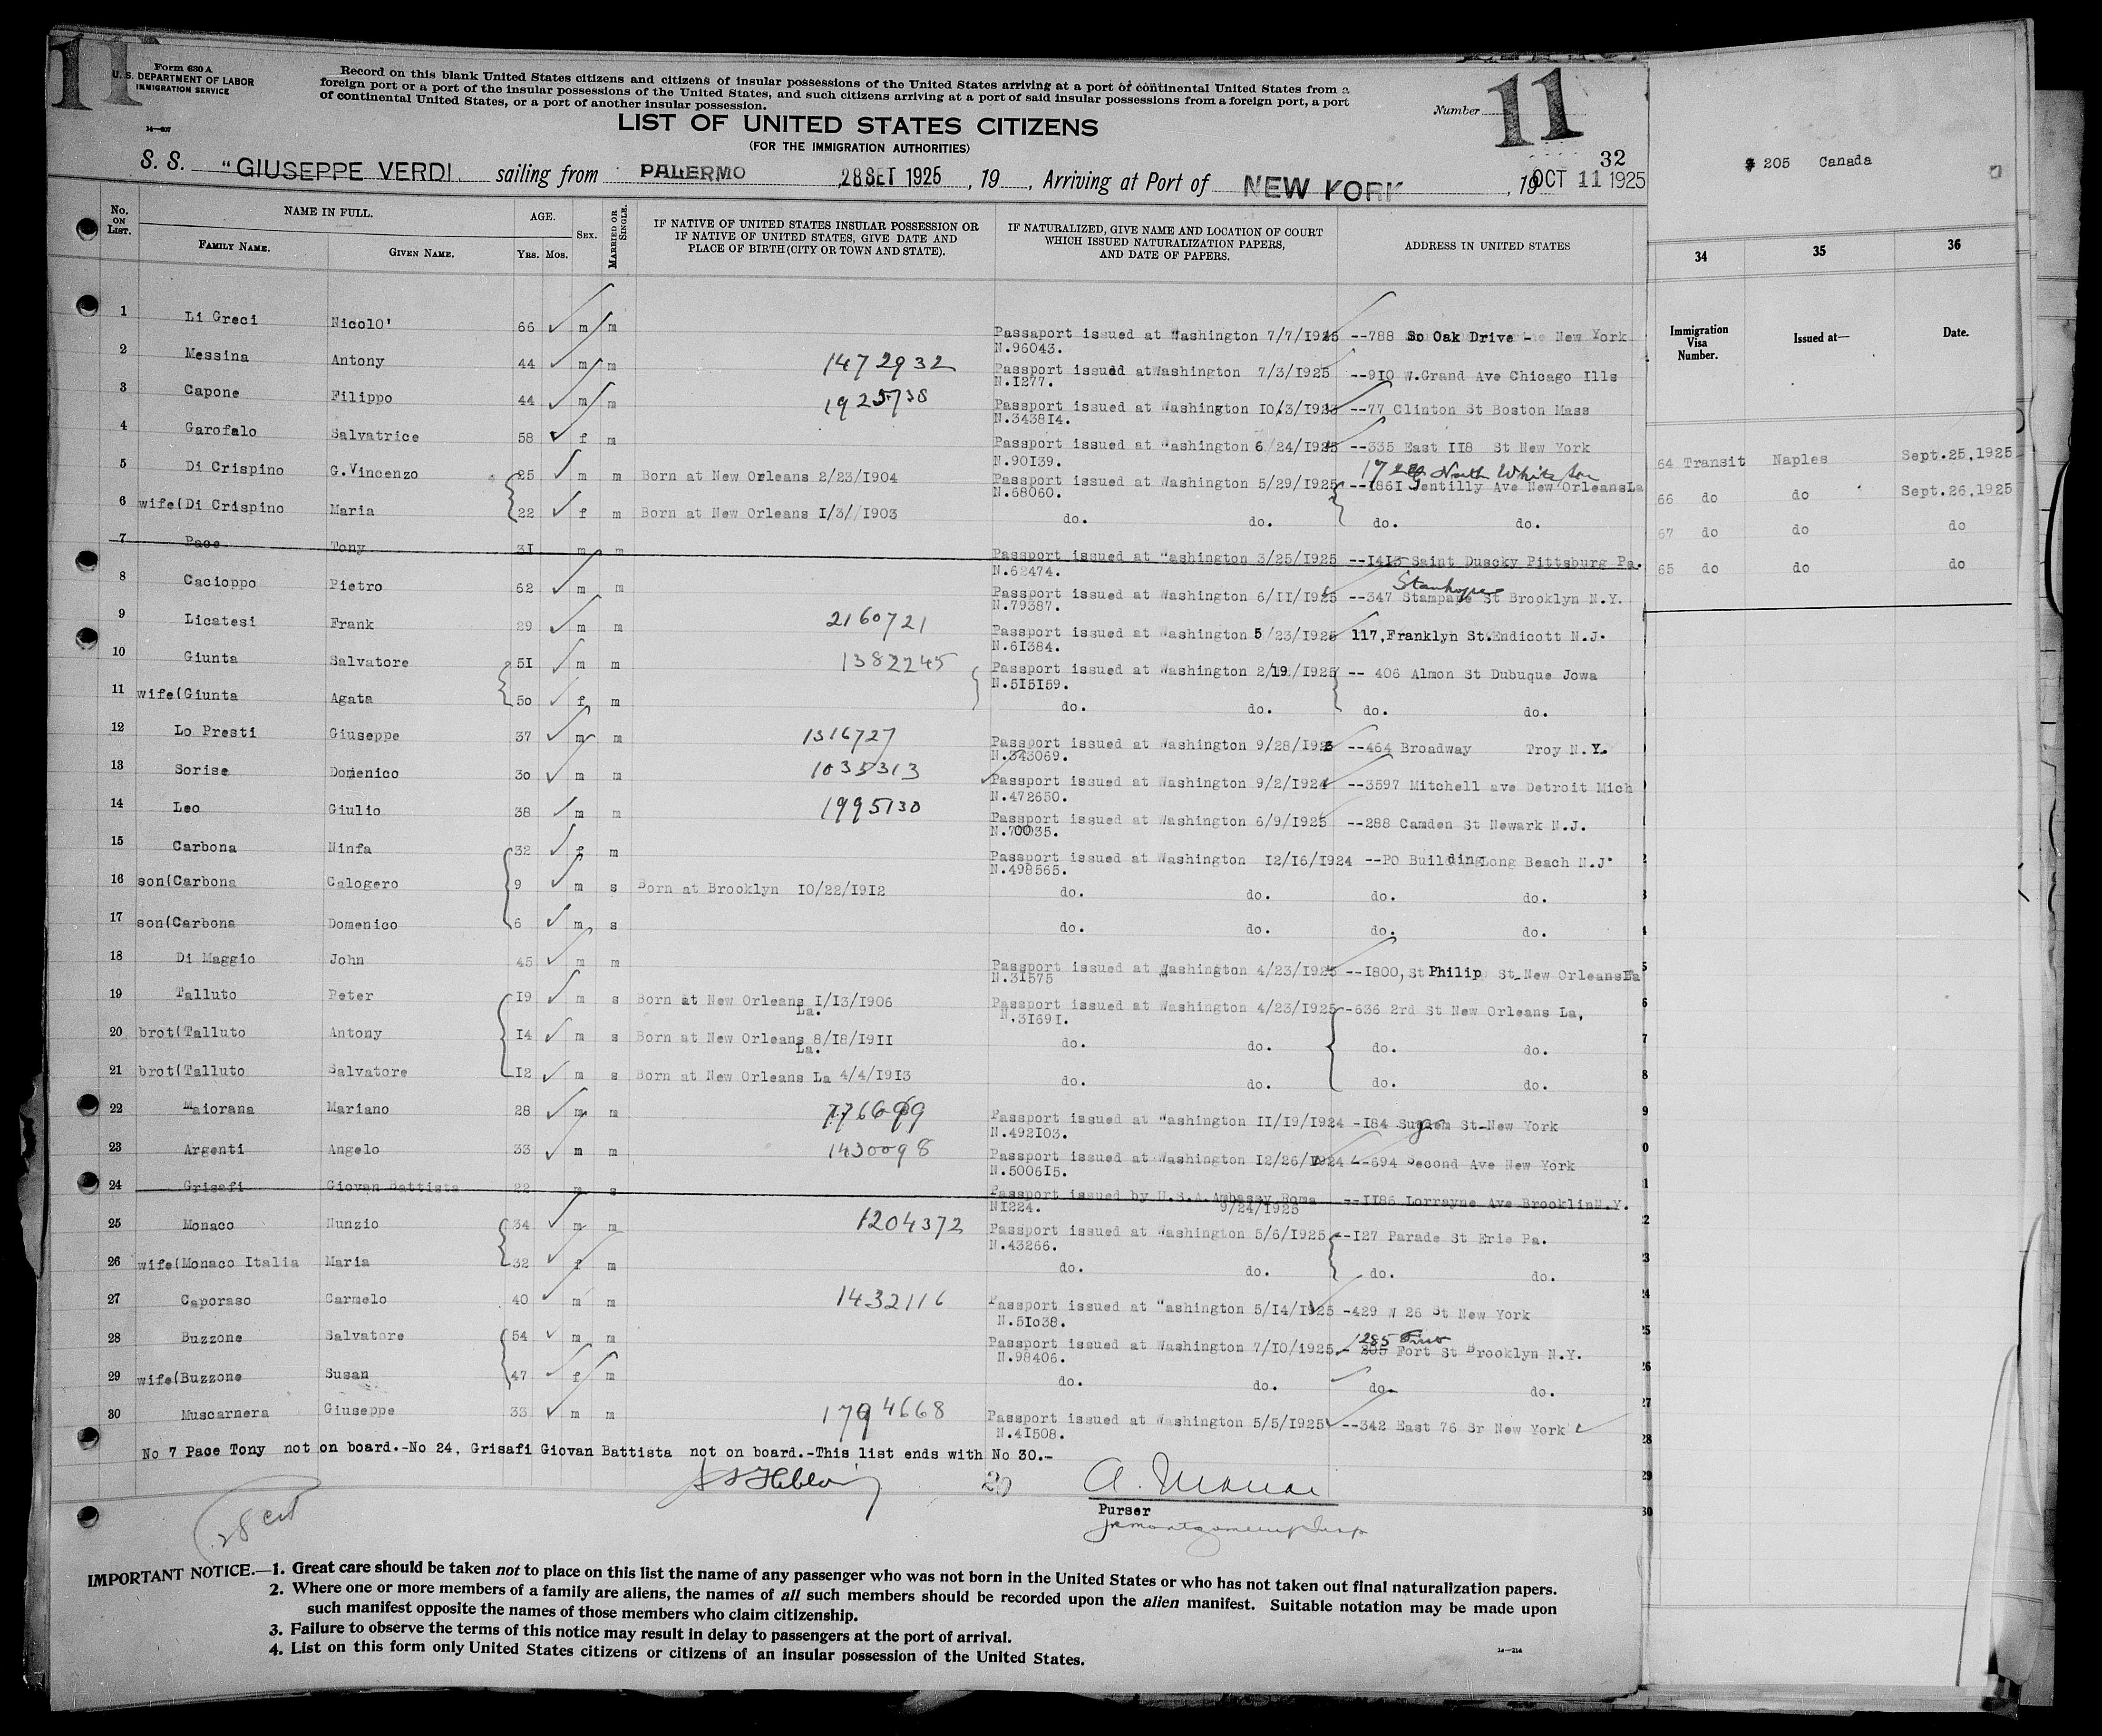 11
Form 630 A
U. S. DEPARTMENT OF LABOR
IMMIGRATION SERVICE
14—607
Record on this blank United States citizens and citizens of insular possessions of the United States arriving at a port of continental United States from a
foreign port or a port of the insular possessions of the United States, and such citizens arriving at a port of said insular possessions from a foreign port, a port
of continental United States, or a port of another insular possession.
Number 11
LIST OF UNITED STATES CITIZENS
(FOR THE IMMIGRATION AUTHORITIES)
32
S. S. "GIUSEPPE VERDI sailing from PALERMO 28 SET 1925, 19 , Arriving at Port of NEW YORK , 19 OCT 11 1925
205 Canada
No. ON LIST. NAME IN FULL. FAMILY NAME. GIVEN NAME. AGE. YRS. MOS. SEX. MARRIED OR SINGLE.
IF NATIVE OF UNITED STATES INSULAR POSSESSION OR
IF NATIVE OF UNITED STATES, GIVE DATE AND
PLACE OF BIRTH (CITY OR TOWN AND STATE).
IF NATURALIZED, GIVE NAME AND LOCATION OF COURT
WHICH ISSUED NATURALIZATION PAPERS,
AND DATE OF PAPERS.
ADDRESS IN UNITED STATES
34 35 36
Immigration Visa Number. Issued at— Date.
1 Li Greci NicolO' 66 m m Passaport issued at Washington 7/7/1925 --788 So Oak Drive - New York
N.96043.
2 Messina Antony 44 m m 1472932 Passport issued atWashington 7/3/1925 --910 W.Grand Ave Chicago Ills
N.1277.
3 Capone Filippo 44 m m 1925738 Passport issued at Washington 10/3/1923 --77 Clinton St Boston Mass
N.343814.
4 Garofalo Salvatrice 58 f m Passport issued at Washington 6/24/1925 --335 East 118 St New York
N.90139.
5 Di Crispino G.Vincenzo 25 m m Born at New Orleans 2/23/1904 Passport issued at Washington 5/29/1925 --1861 Gentilly Ave New OrleansLa
N.68060.
North White
6 wife(Di Crispino Maria 22 f m Born at New Orleans 1/3//1903 do. do. do. do.
7 Pace Tony 31 m m Passport issued at Washington 3/25/1925 --1415 Saint Duscky Pittsburg Pa.
N.62474.
8 Cacioppo Pietro 62 m m Passport issued at Washington 6/11/1925 --347 Stampane St Brooklyn N.Y.
Stanhope
N.79387.
9 Licatesi Frank 29 m m 2160721 Passport issued at Washington 5/23/1925 117,Franklyn St.Endicott N.J.
N.61384.
10 Giunta Salvatore 51 m m 1382245 Passport issued at Washington 2/19/1925 -- 406 Almon St Dubuque Jowa
N.515159.
11 wife(Giunta Agata 50 f m do. do. do. do.
12 Lo Presti Giuseppe 37 m m 1316727 Passport issued at Washington 9/28/1923 --464 Broadway Troy N.Y.
N.343069.
13 Sorise Domenico 30 m m 1035313 Passport issued at Washington 9/2/1924 --3597 Mitchell ave Detroit Mich
N.472650.
14 Leo Giulio 38 m m 1995130 Passport issued at Washington 6/9/1925 --288 Camden St Newark N.J.
N.70035.
15 Carbona Ninfa 32 f m Passport issued at Washington 12/16/1924 --PO Building Long Beach N.J.
N.498565.
16 son(Carbona Calogero 9 m s Born at Brooklyn 10/22/1912 do. do. do. do.
17 son(Carbona Domenico 6 m s do. do. do. do.
18 Di Maggio John 45 m m Passport issued at Washington 4/23/1925 --1800, St Philip St New OrleansLa
N.31575
19 Talluto Peter 19 m s Born at New Orleans 1/13/1906 Passport issued at Washington 4/23/1925 -636 2rd St New Orleans La,
La. N.31691.
20 brot(Talluto Antony 14 m s Born at New Orleans 8/18/1911 do. do. do. do.
La.
21 brot(Talluto Salvatore 12 m s Born at New Orleans La 4/4/1913 do. do. do. do.
22 Maiorana Mariano 28 m m Passport issued at Washington 11/19/1924 -184 St New York
N.492103.
23 Argenti Angelo 33 m m 1430098 Passport issued at Washington 12/26/1924 --694 Second Ave New York
N.500615.
24 Grisafi Giovan Battista 22 m s Passport issued by U.S.A.Ambassy Roma --1186 Lorrayne Ave BrooklinN.Y.
N1224. 9/24/1925
25 Monaco Nunzio 34 m m 1204372 Passport issued at Washington 5/6/1925 --127 Parade St Erie Pa.
N.43266.
26 wife(Monaco Italia Maria 32 f m do. do. do. do.
27 Caporaso Carmelo 40 m m 1432116 Passport issued at Washington 5/14/1925 -429 W 26 St New York
N.51038.
28 Buzzone Salvatore 54 m m Passport issued at Washington 7/10/1925 - 205 Fort St Brooklyn N.Y.
N.98406. 1285
29 wife(Buzzone Susan 47 f m do. do. do. do.
30 Muscarnera Giuseppe 33 m m 1794668 Passport issued at Washington 5/5/1925 --342 East 76 Sr New York
N.41508.
64 Transit Naples Sept.25,1925
66 do do Sept.26,1925
67 do do do
65 do do do
No 7 Pace Tony not on board.-No 24, Grisafi Giovan Battista not on board.-This list ends with No 30.-
Purser
28 cit
IMPORTANT NOTICE.—1. Great care should be taken not to place on this list the name of any passenger who was not born in the United States or who has not taken out final naturalization papers.
2. Where one or more members of a family are aliens, the names of all such members should be recorded upon the alien manifest. Suitable notation may be made upon
such manifest opposite the names of those members who claim citizenship.
3. Failure to observe the terms of this notice may result in delay to passengers at the port of arrival.
4. List on this form only United States citizens or citizens of an insular possession of the United States.
14—214